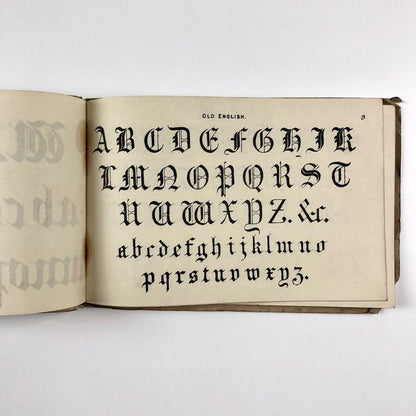 OLD ENGLISH. 3
ABCDEFGHIK
LMNOPQRST
UVWXYZ. &c.
abcdefghijklmno
pqrstuvwxyz.